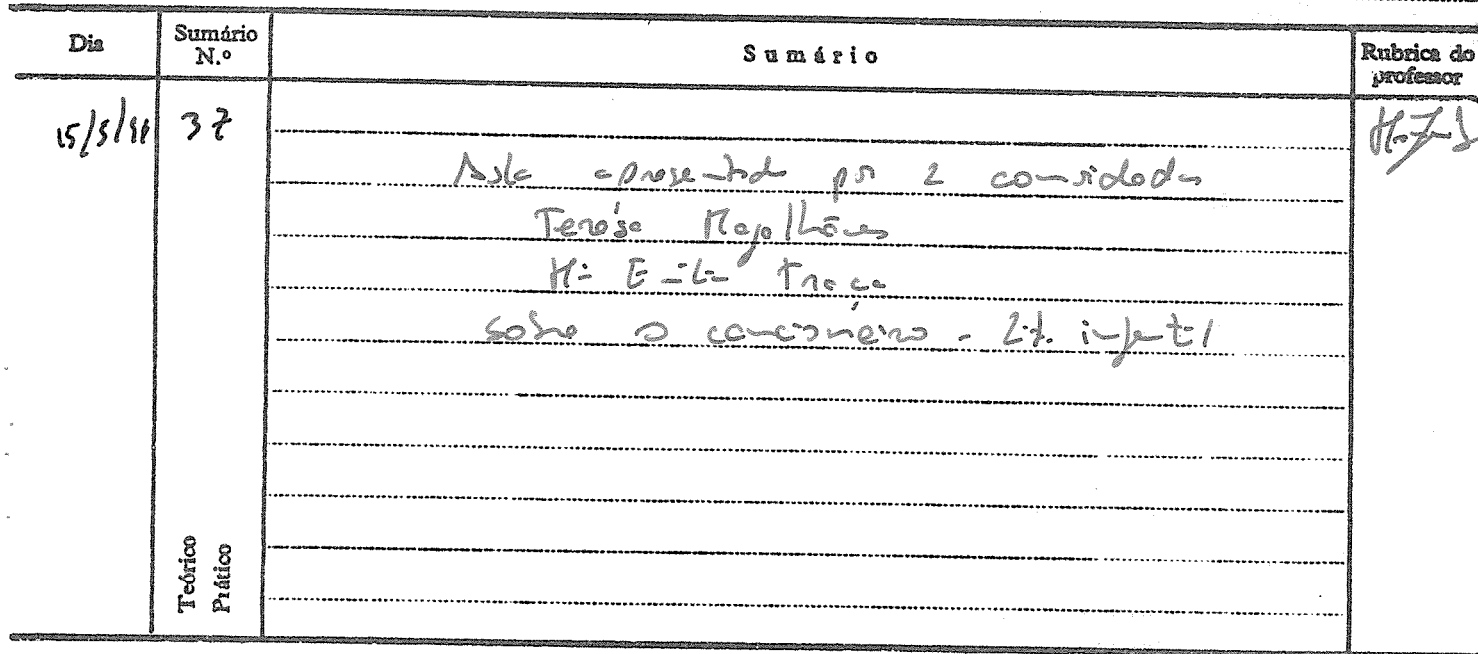 Dia
Sumário N.º
Sumário
Rubrica do professor
15/5/
37
Aula apresentada por 2 convidadas
Teresa Magalhães
Mª Emília Traça
sobre o cancioneiro - lit. infantil
Teórico
Prático